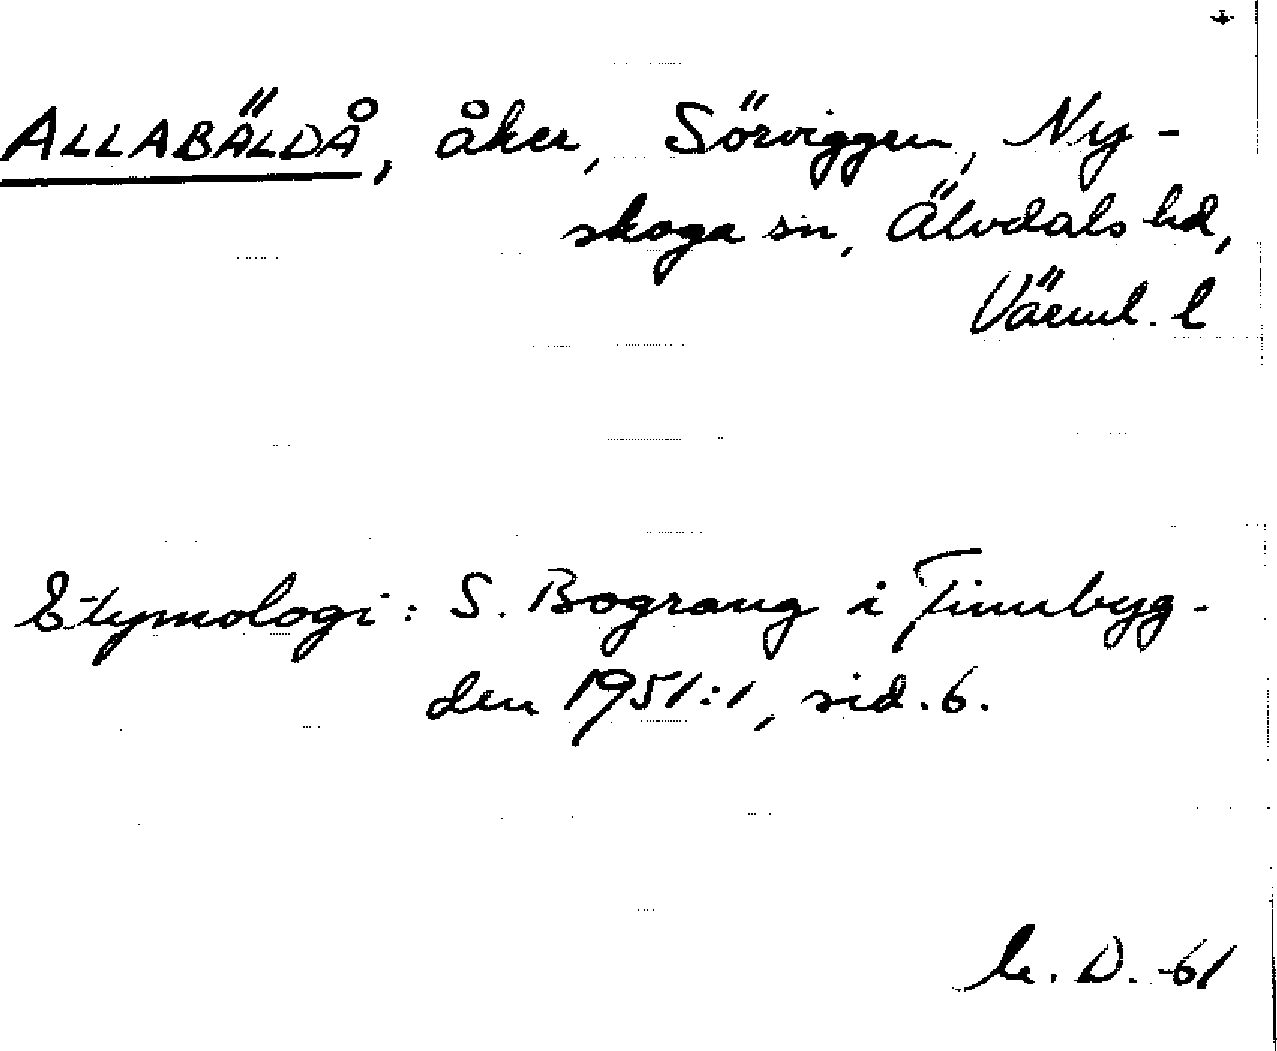 ALLABÄLDÅ, åker, Sörviggen, Ny-
skoga sn, Älvdals hd,
Värml. l
Etymologi: S. Bograng i Finnbyg-
den 1951:1, sid. 6.
D. -61